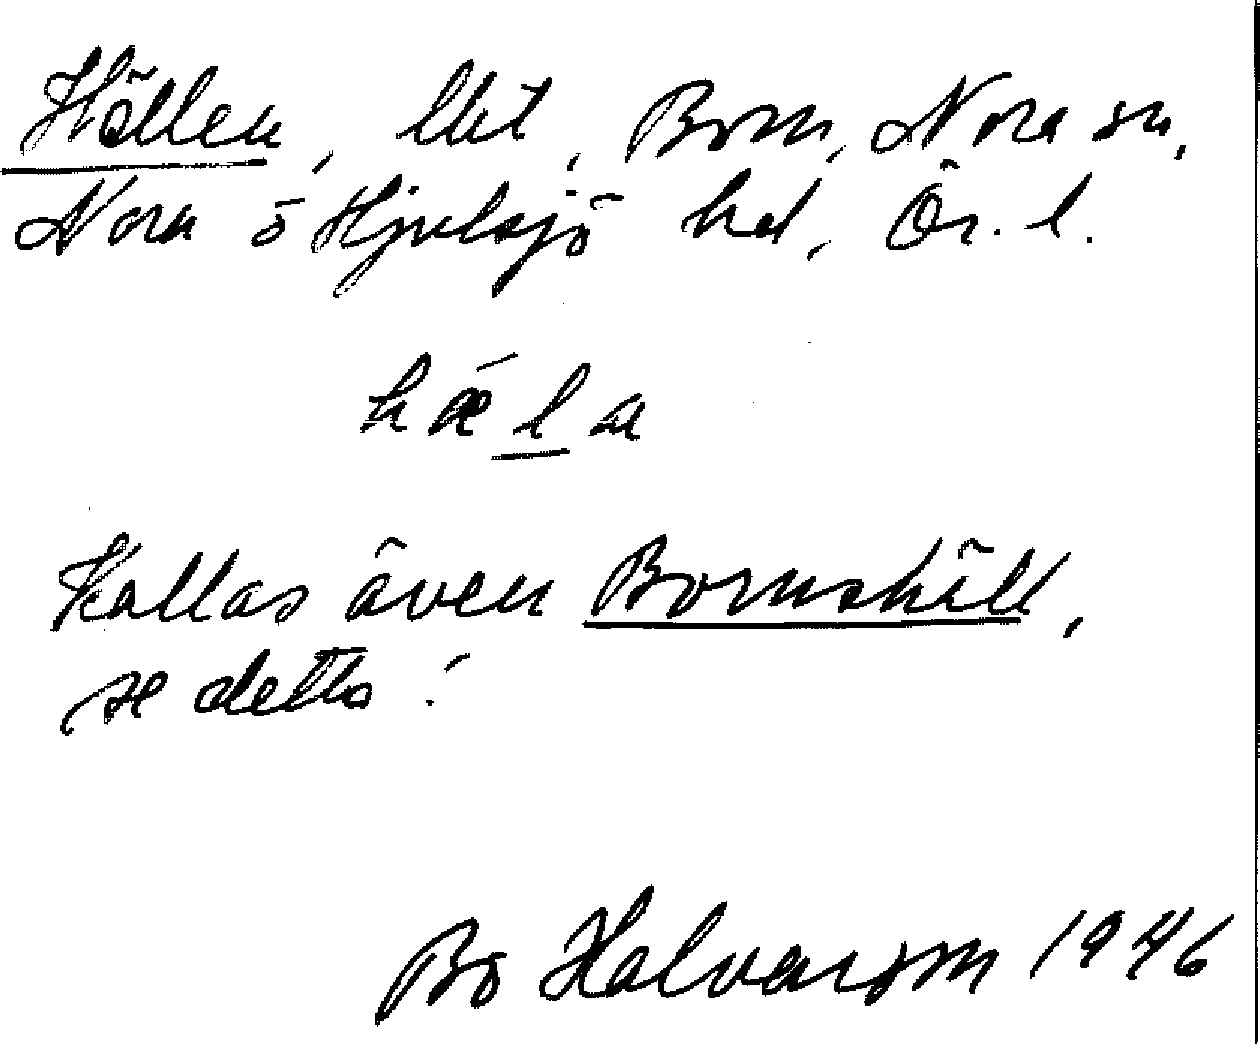 Hällen, lht, Born, Nora sn,
Nora o Hjulsjö hd, Ör. l.
hǽla
Kallas även Bornshäll,
se detta!
Bo Halvarson 1946